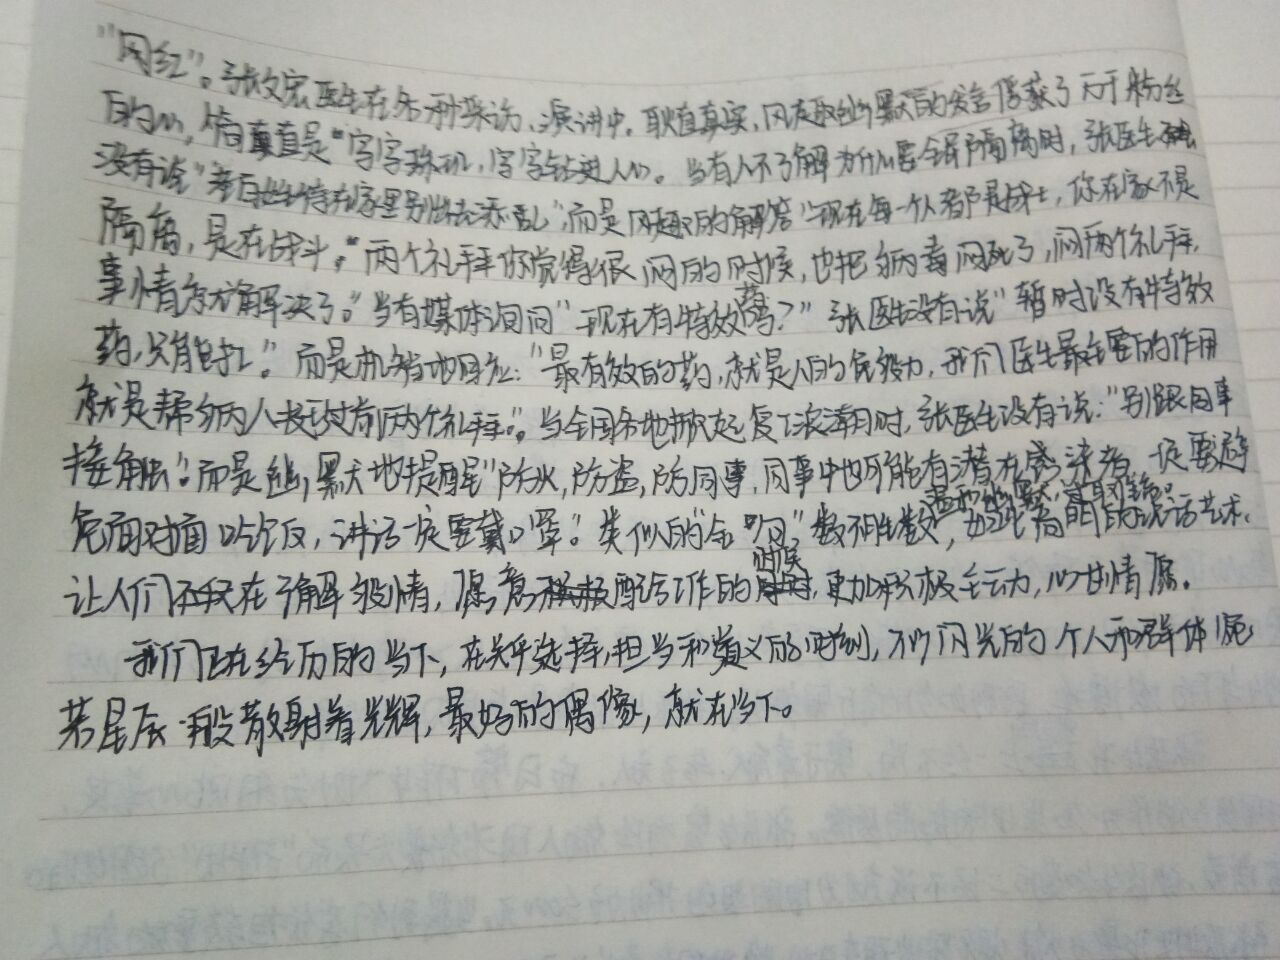 "网红"。张文宏医生在各种采访、演讲中,耿直真实,风趣幽默的发言俘获了万千粉丝
的心,简直是"字字珠玑,字字钻进人心。当有人不了解为什么要全屏隔离时,张医生
没有说"老百姓待在家里别出去添乱",而是风趣的解答"现在每一个人都是战士,你在家不是
隔离,是在战斗。"两个礼拜你觉得很闷的时候,也把病毒闷死了,闷两个礼拜,
事情就解决了。"当有媒体询问"现在有特效药吗?"张医生没有说"暂时没有特效
药,只能扛。"而是机智地回应:"最有效的药,就是人的免疫力,我们医生最重要的作用
就是帮病人扶过前两个礼拜。"。当全国各地掀起复工浪潮时,张医生没有说:"别跟同事
接触"。而是幽默地提醒"防火,防盗,防同事,同事中也可能有潜在感染者,一定要避
免面对面吃饭,讲话一定要戴口罩。"类似的"金句"数不胜数,如此高的说话艺术,
让人们在了解疫情,愿意配合工作的时候,更加积极主动,心甘情愿。
我们正在经历的当下,在关乎选择,担当和道义的时刻,不少闪光的个人和群体宛
若星辰一般散射着光辉,最好的偶像,就在当下。